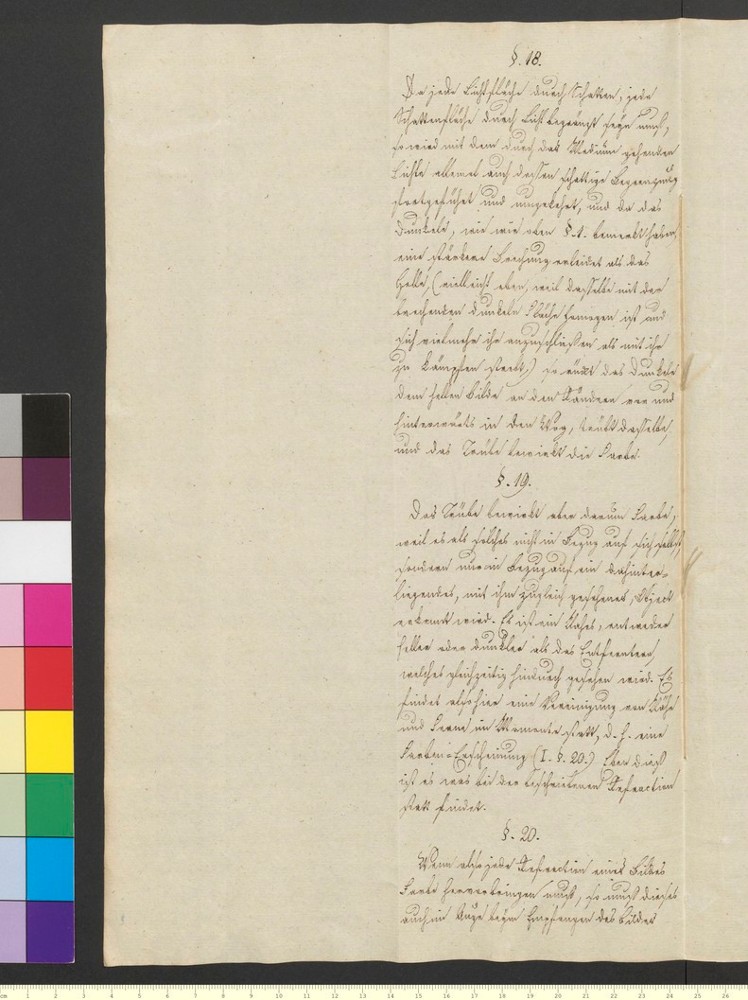 §. 18.
Da jede Lichtfläche durch Schatten, jede
Schattenfläche durch Licht begränzt seyn muß,
so wird mit dem durch das Medium gehenden
Lichte allemal auch dessen schattige Begrenzung
fortgeführt und umgekehrt, und da das
Dunkele, wie wir oben §. 1. bemerkt haben,
eine stärkere Brechung erleidet als das
Helle, (vielleicht eben, weil dasselbe mit der
brechenden dunkeln Fläche homogen ist und
sich vielmehr ihr anzuschließen als mit ihr
zu kämpfen strebt,) so rückt das Dunkele
dem hellen Bilde an den Rändern vor und
hinterwärts in den Weg, trübt dasselbe,
und das Trübe bewirkt die Farbe.
§. 19.
Das Trübe bewirkt aber darum Farbe,
weil es als solches nicht in Bezug auf sich selbst,
sondern nur in Bezug auf ein dahinter-
liegendes, mit ihm zugleich gesehenes, Object
erkannt wird. Es ist ein Nahes, entweder
heller oder dunkler als das Entferntere,
welches gleichzeitig hindurch gesehen wird. Es
findet also hier eine Vereinigung von Nähe
und Ferne im Momente statt, d. h. eine
Farben-Erscheinung (I. §. 20.) Eben dieß
ist es was bei der beschriebenen Refraction
statt findet.
§. 20.
Wenn also jede Refraction eines Bildes
Farbe hervorbringen muß, so muß dieses
auch im Auge beym Empfangen des Bildes